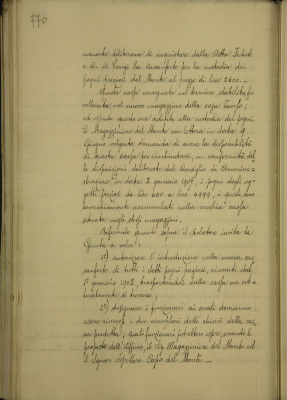 770
mente deliberava di acquistare dalla Ditta Fichet
e di Parigi la cassa-forte per la custodia dei
pegni preziosi del Monte al prezzo di lire 2600.–
Questa cassa consegnata nel termine stabilito fu
collocata nel nuovo magazzino della cassa
ed essendo questa ora adibita alla custodia dei pegni,
il Magazziniere del Monte con lettera in data
Giugno volgente domanda di avere la disponibilità
di questa cassa per rinchiudervi, in conformità del
le disposizioni deliberate dal Consiglio di Ammini=
strazione in data 2 gennaio, i pegni degli og=
getti preziosi da lire 500 a lire 4999, i quali sono
attualmente accumulati nella vecchia cassa
situata negli stessi magazzini.
Riferendo quanto sopra il Relatore invita la
Giunta a voler:
1°) autorizzare l'introduzione nella nuova cas
saforte di tutti i detti pegni preziosi, ricevuti dal
1° gennaio, trasportandoli dalla cassa ove at=
tualmente si trovano;
2°) designare i funzionari ai quali dovranno
essere i due esemplari delle chiavi della cas
sa predetta, quali funzionari potrebbero essere, secondo le
proposte dell'Ufficio, il Sig. Magazziniere del Monte ed
il Signor Ispettore Capo del Monte.–